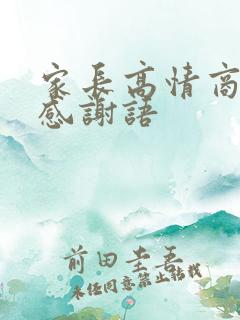 家長高情商
感謝語
前田圭吾
未任同意禁止转载